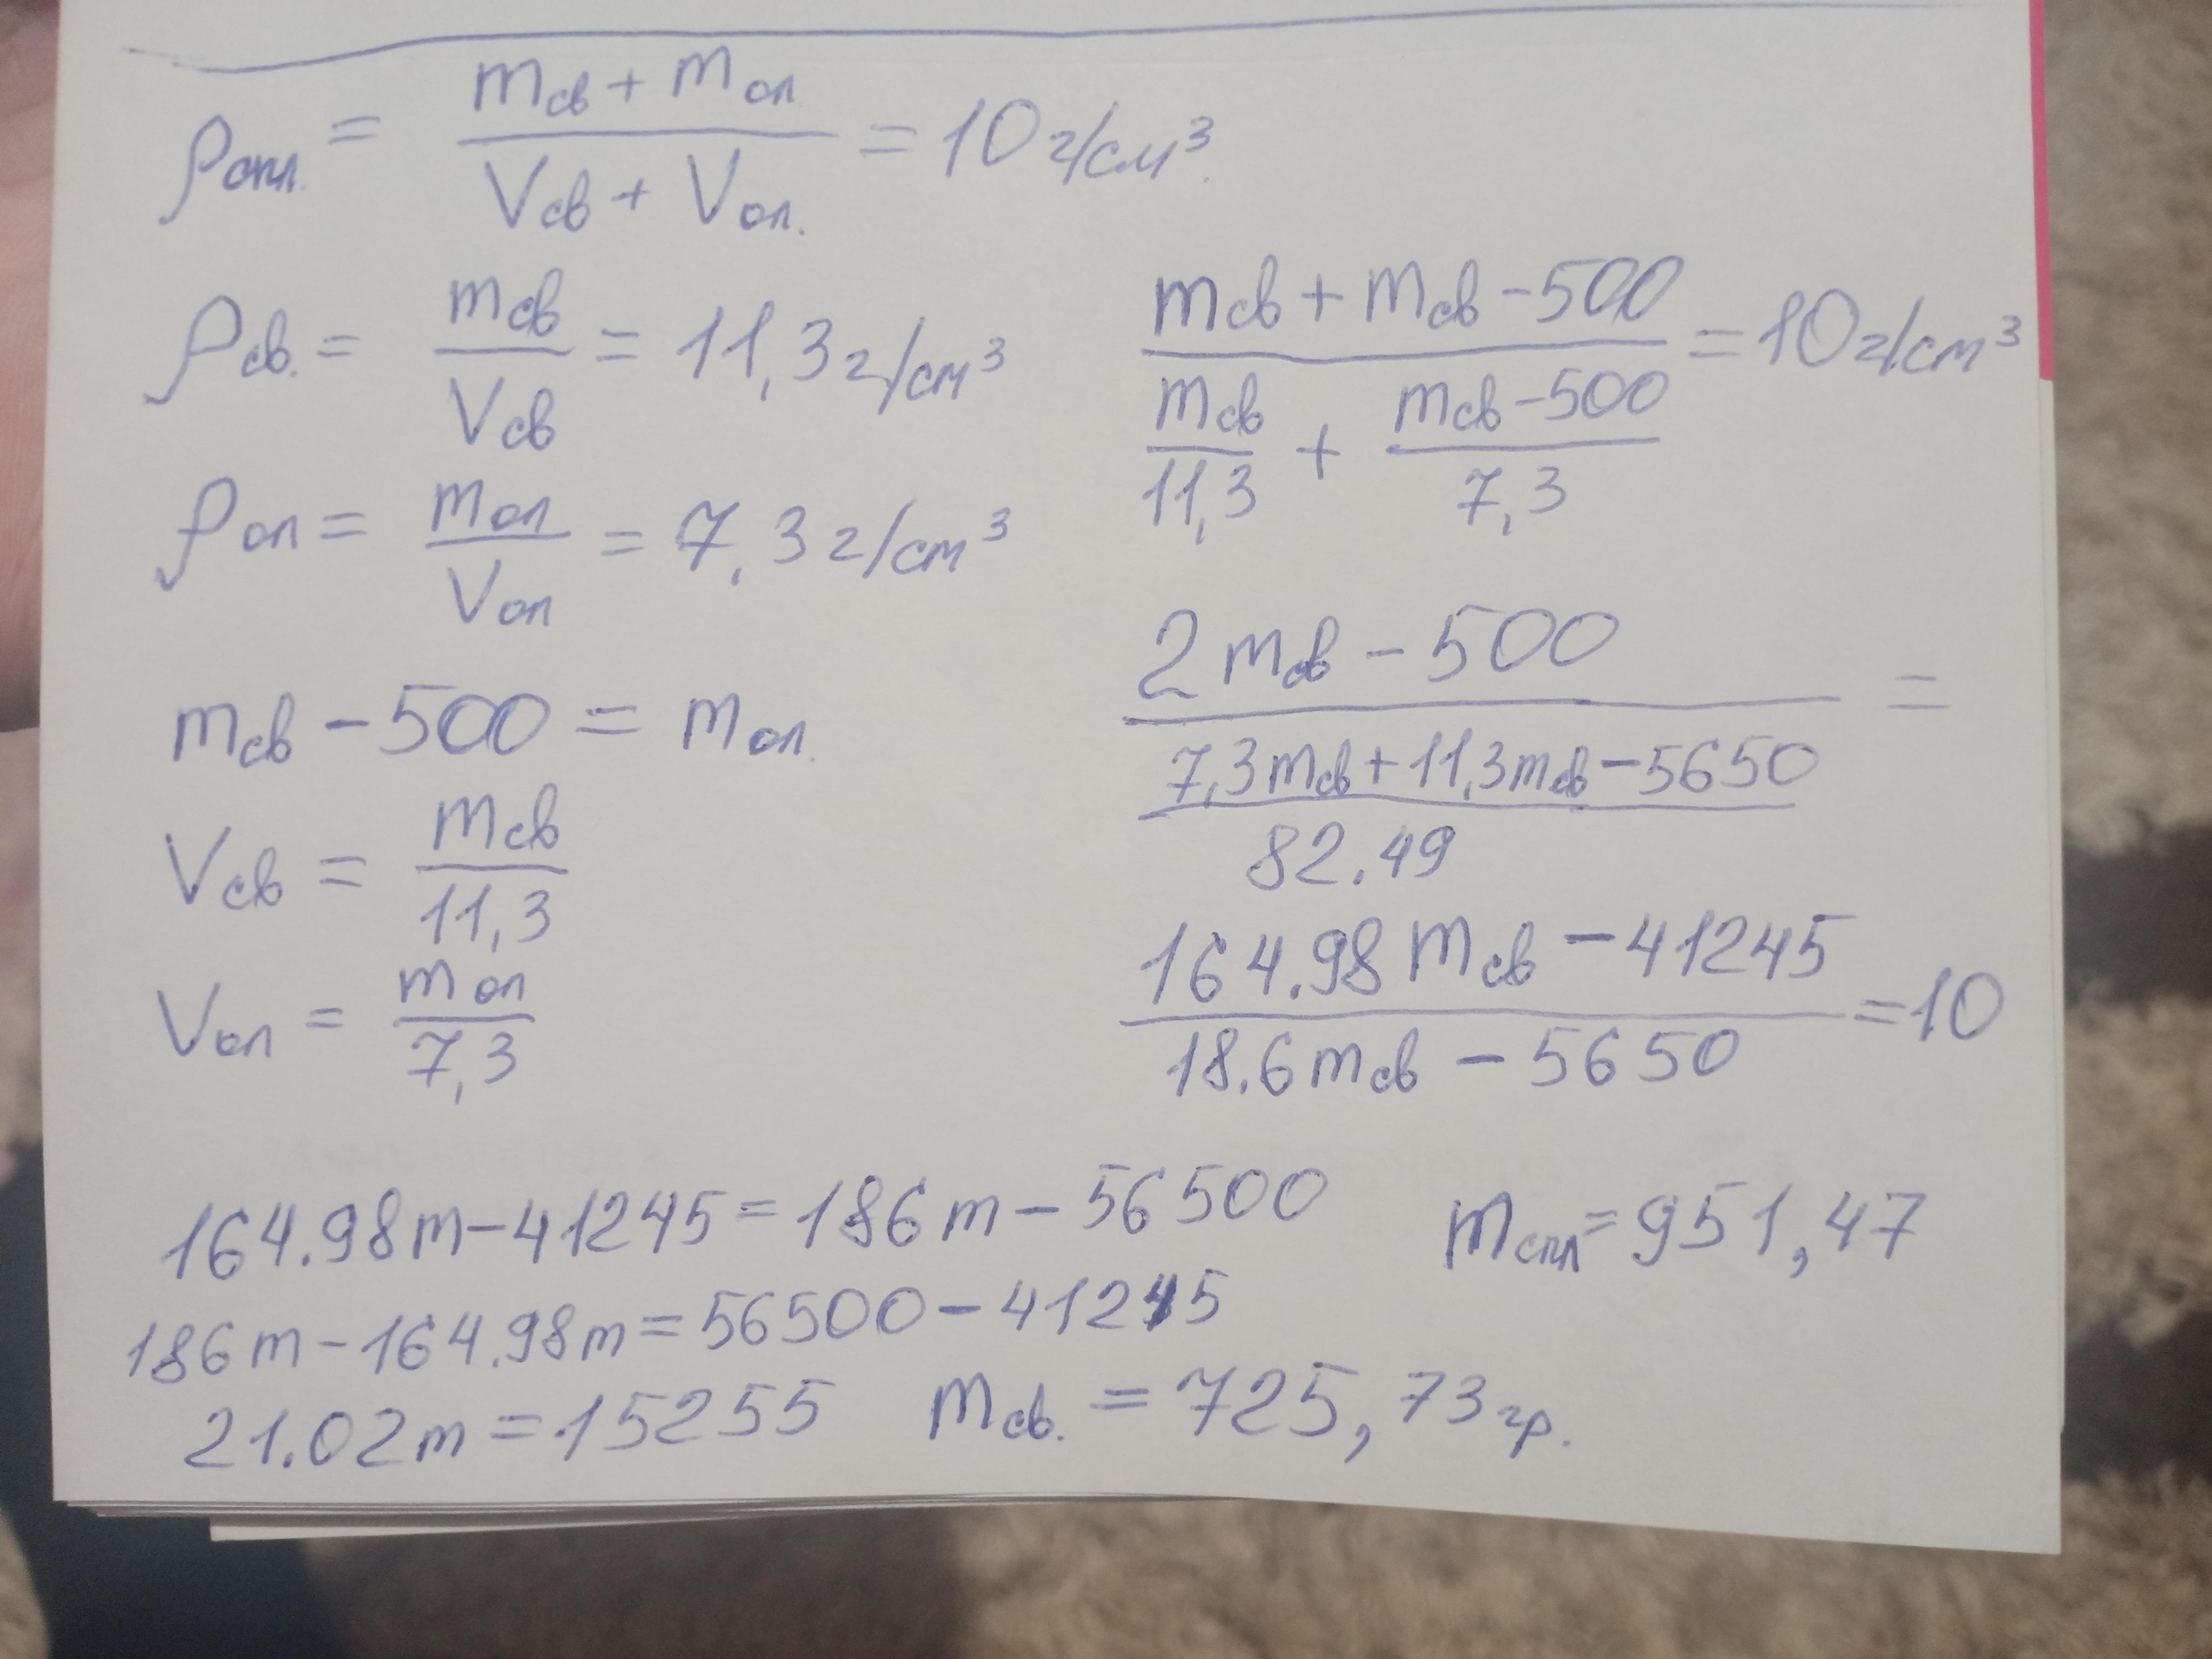 ρспл. = (mсв + mол) / (Vсв + Vол.) = 10 г/см³.
ρсв. = mсв / Vсв = 11,3 г/см³
ρол = mол / Vол = 7,3 г/см³
mсв - 500 = mол.
Vсв = mсв / 11,3
Vол = mол / 7,3
(mсв + mсв - 500) / (mсв / 11,3 + (mсв - 500) / 7,3) = 10 г/см³
(2mсв - 500) / ((7,3mсв + 11,3mсв - 5650) / 82.49) =
(164.98mсв - 41245) / (18.6mсв - 5650) = 10
164.98m - 41245 = 186m - 56500
mспл = 951,47
186m - 164.98m = 56500 - 41245
21.02m = 15255 mсв. = 725,73гр.